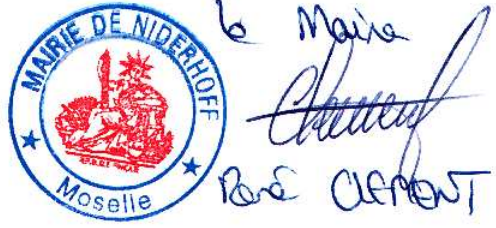 MAIRIE DE NIDERHOFF
Moselle
le Maire
René CLEMENT